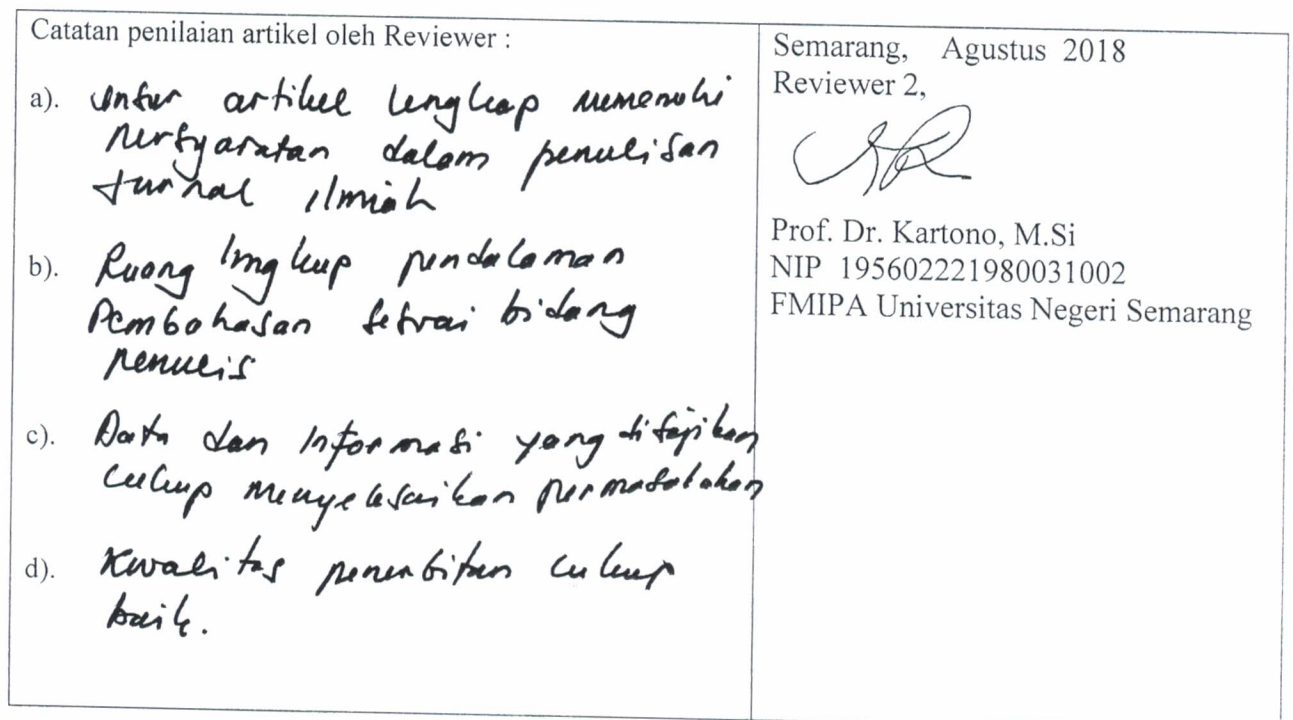 Catatan penilaian artikel oleh Reviewer :
a). Unsur artikel lengkap memenuhi
persyaratan dalam penulisan
Jurnal ilmiah
b). Ruang lingkup pendalaman
Pembahasan sesuai bidang
penulis
c). Data dan Informasi yang disajikan
cukup menyelesaikan permasalahan
d). Kwalitas penerbitan cukup
baik.
Semarang, Agustus 2018
Reviewer 2,
Prof. Dr. Kartono, M.Si
NIP 195602221980031002
FMIPA Universitas Negeri Semarang